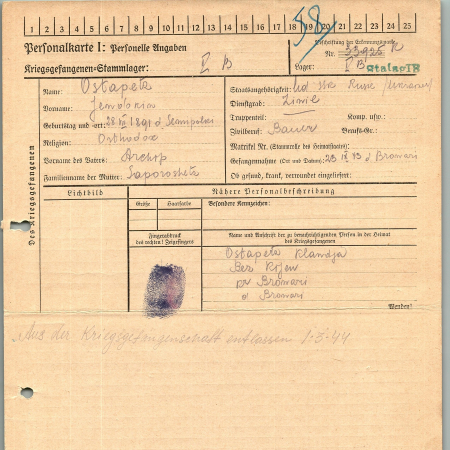 1 2 3 4 5 6 7 8 9 10 11 12 13 14 15 16 17 18 19 20 21 22 23 24 25
58
Personalkarte I: Personelle Angaben
Kriegsgefangenen-Stammlager: I B
Beschriftung der Erkennungsmarke
Nr. 33925 K
Lager: I B
Stalag IB
Des Kriegsgefangenen
Name: Ostapetz
Vorname:
Geburtstag und -ort: 28 1891 d
Religion: Orthodox
Vorname des Vaters: Archip
Familienname der Mutter: Saporoshetz
Staatsangehörigkeit: Ukrainer
Dienstgrad: Zivil
Truppenteil: Komp. usw.:
Zivilberuf: Bauer Berufs-Gr.:
Matrikel Nr. (Stammrolle des Heimatstaates):
Gefangennahme (Ort und Datum): 23 IX 43 d Browari
Ob gesund, krank, verwundet eingeliefert:
Lichtbild
Nähere Personalbeschreibung
Größe Haarfarbe
Besondere Kennzeichen:
Fingerabdruck
des rechten! Zeigefingers
Name und Anschrift der zu benachrichtigenden Person in der Heimat
des Kriegsgefangenen
Ostapetz Klawdja
Bez Kijew
Browari
d Browari
Wenden!
Aus der Kriegsgefangenschaft entlassen 1-3-44